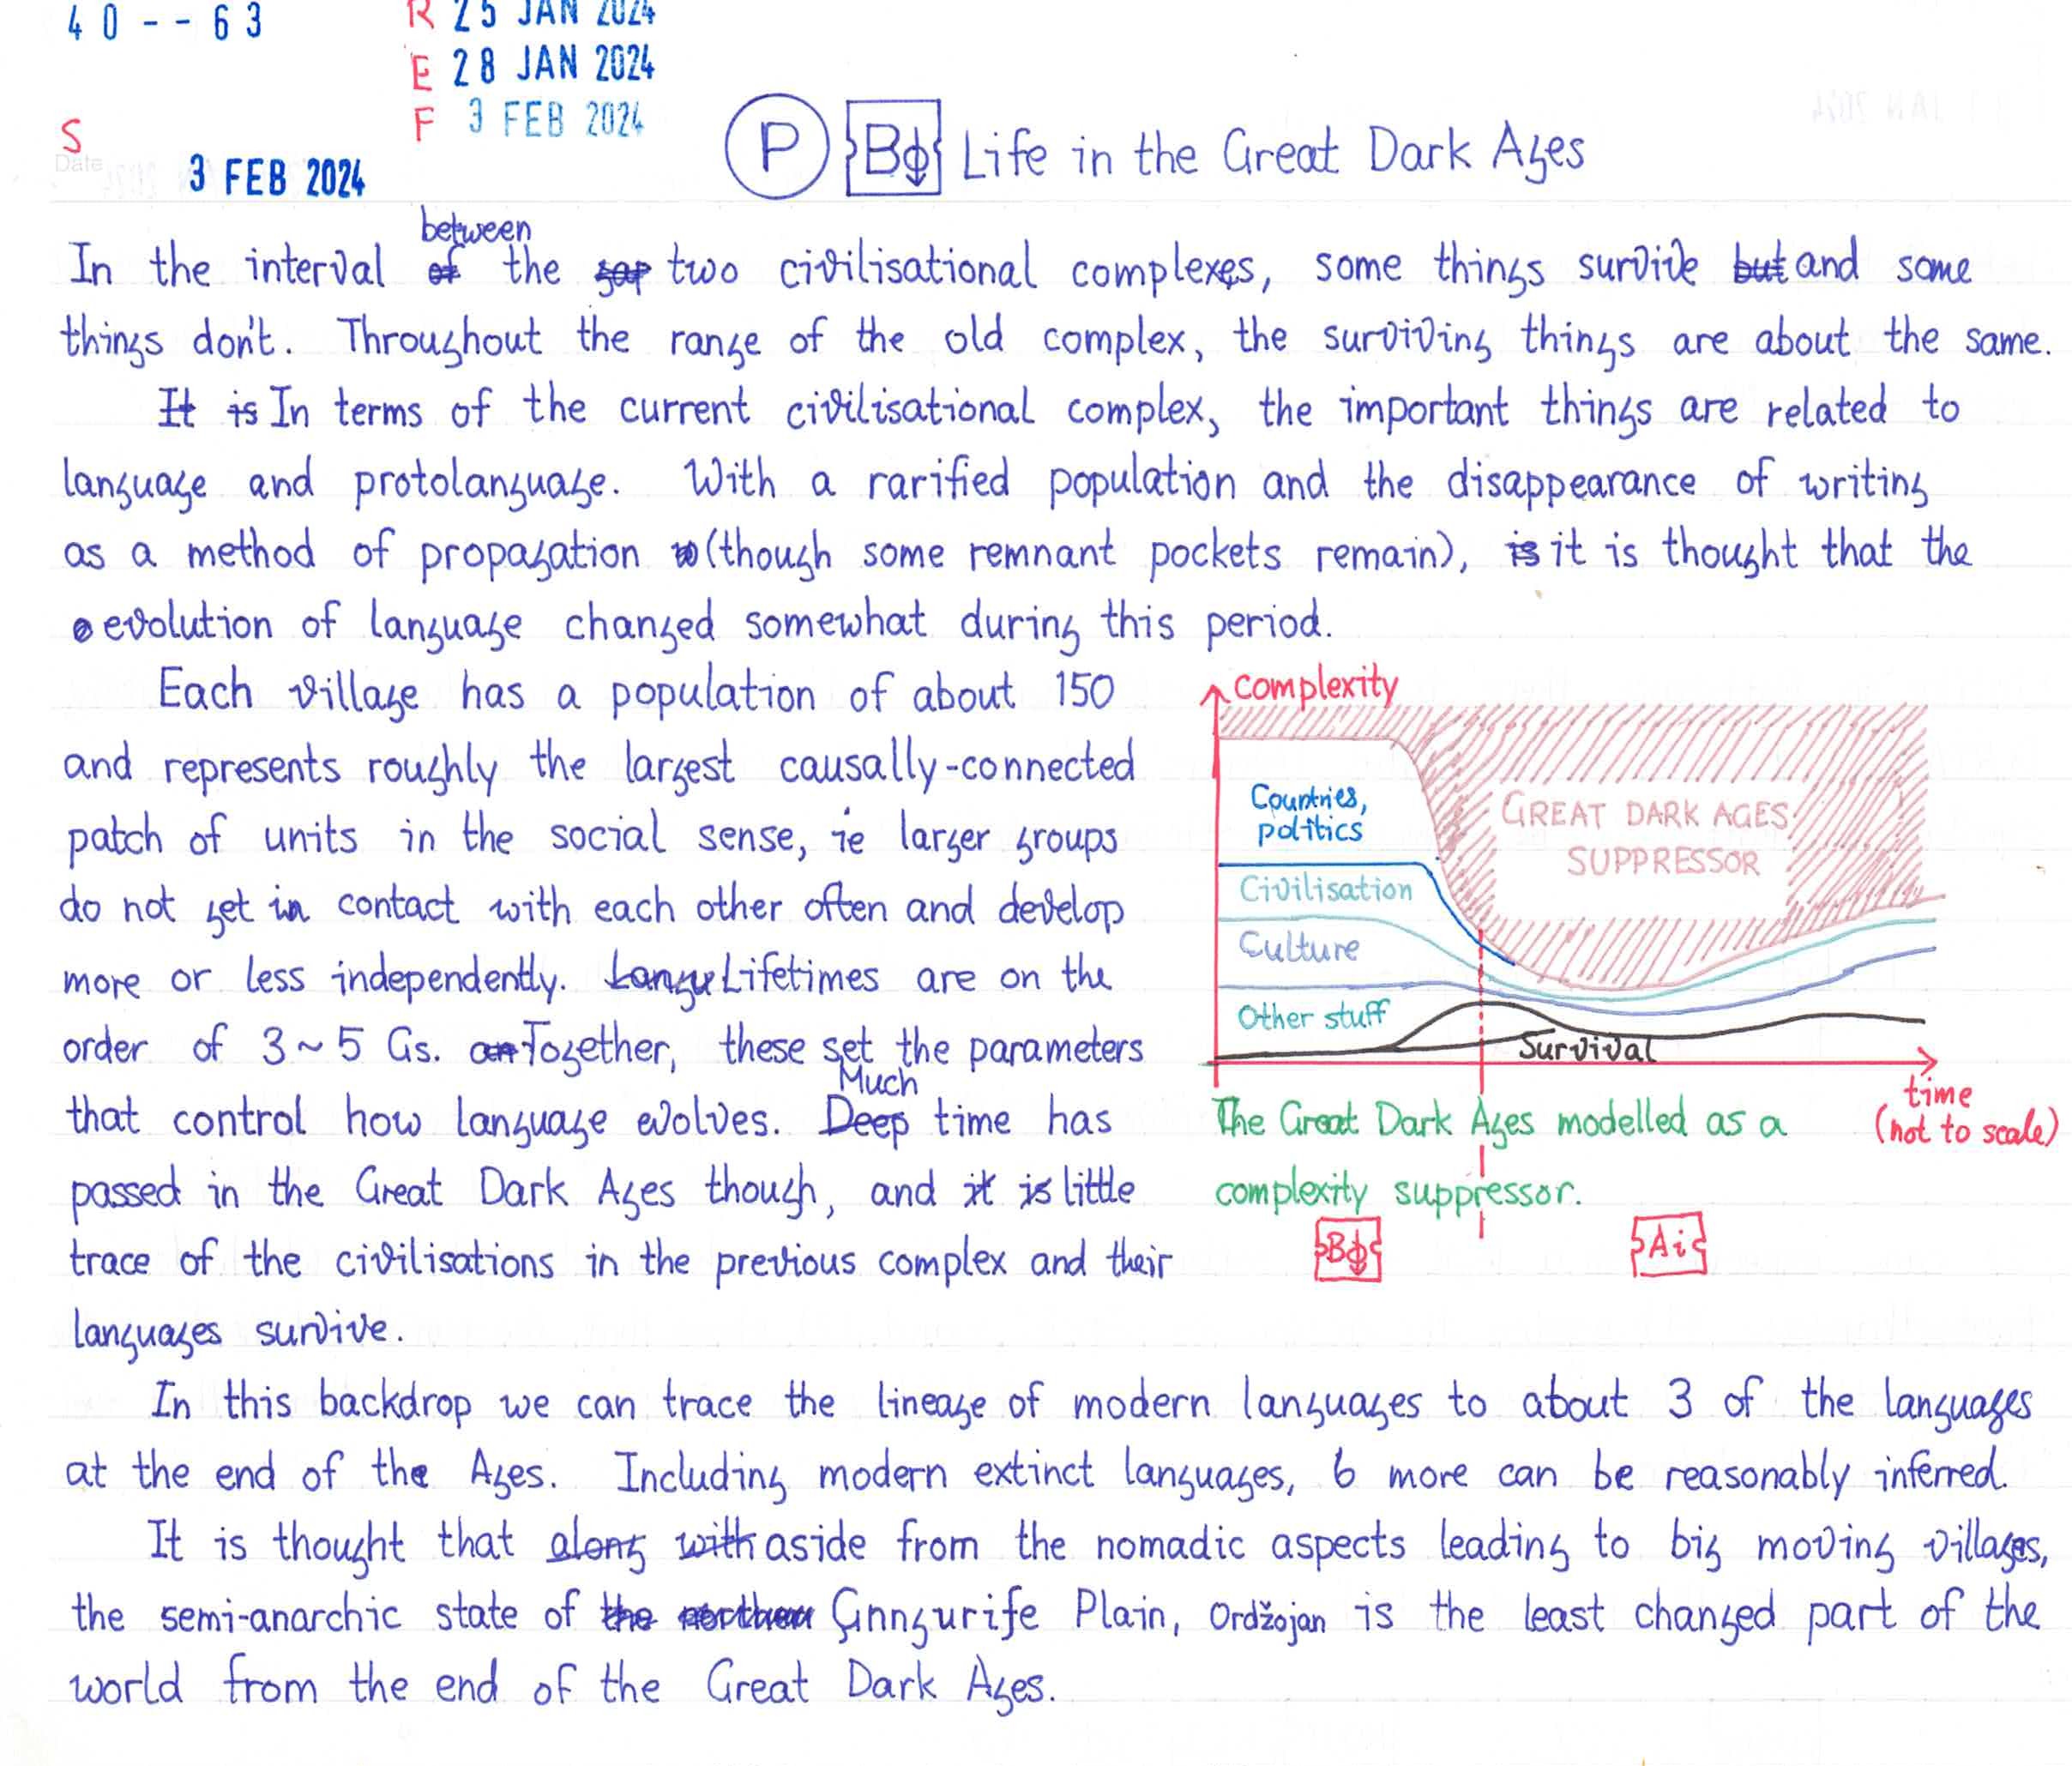 40--63
R 25 JAN 2024
E 28 JAN 2024
F 3 FEB 2024
S
Date
3 FEB 2024
P Life in the Great Dark Ages
between
In the interval of the gap two civilisational complexes, some things survive but and some
things don't. Throughout the range of the old complex, the surviving things are about the same.
It is In terms of the current civilisational complex, the important things are related to
language and protolanguage. With a rarified population and the disappearance of writing
as a method of propagation (though some remnant pockets remain), is it is thought that the
evolution of language changed somewhat during this period.
Each village has a population of about 150
and represents roughly the largest causally-connected
patch of units in the social sense, ie larger groups
do not get in contact with each other often and develop
more or less independently. Langu Lifetimes are on the
order of 3~5 Gs. an Together, these set the parameters
Much
that control how language evolves. Deep time has
passed in the Great Dark Ages though, and it is little
trace of the civilisations in the previous complex and their
languages survive.
complexity
Countries,
politics
Civilisation
Culture
Other stuff
Survival
GREAT DARK AGES
SUPPRESSOR
time
(not to scale)
The Great Dark Ages modelled as a
complexity suppressor.
Ai
In this backdrop we can trace the lineage of modern languages to about 3 of the languages
at the end of the Ages. Including modern extinct languages, 6 more can be reasonably inferred.
It is thought that along with aside from the nomadic aspects leading to big moving villages,
the semi-anarchic state of the northern Plain, Ordžojan is the least changed part of the
world from the end of the Great Dark Ages.